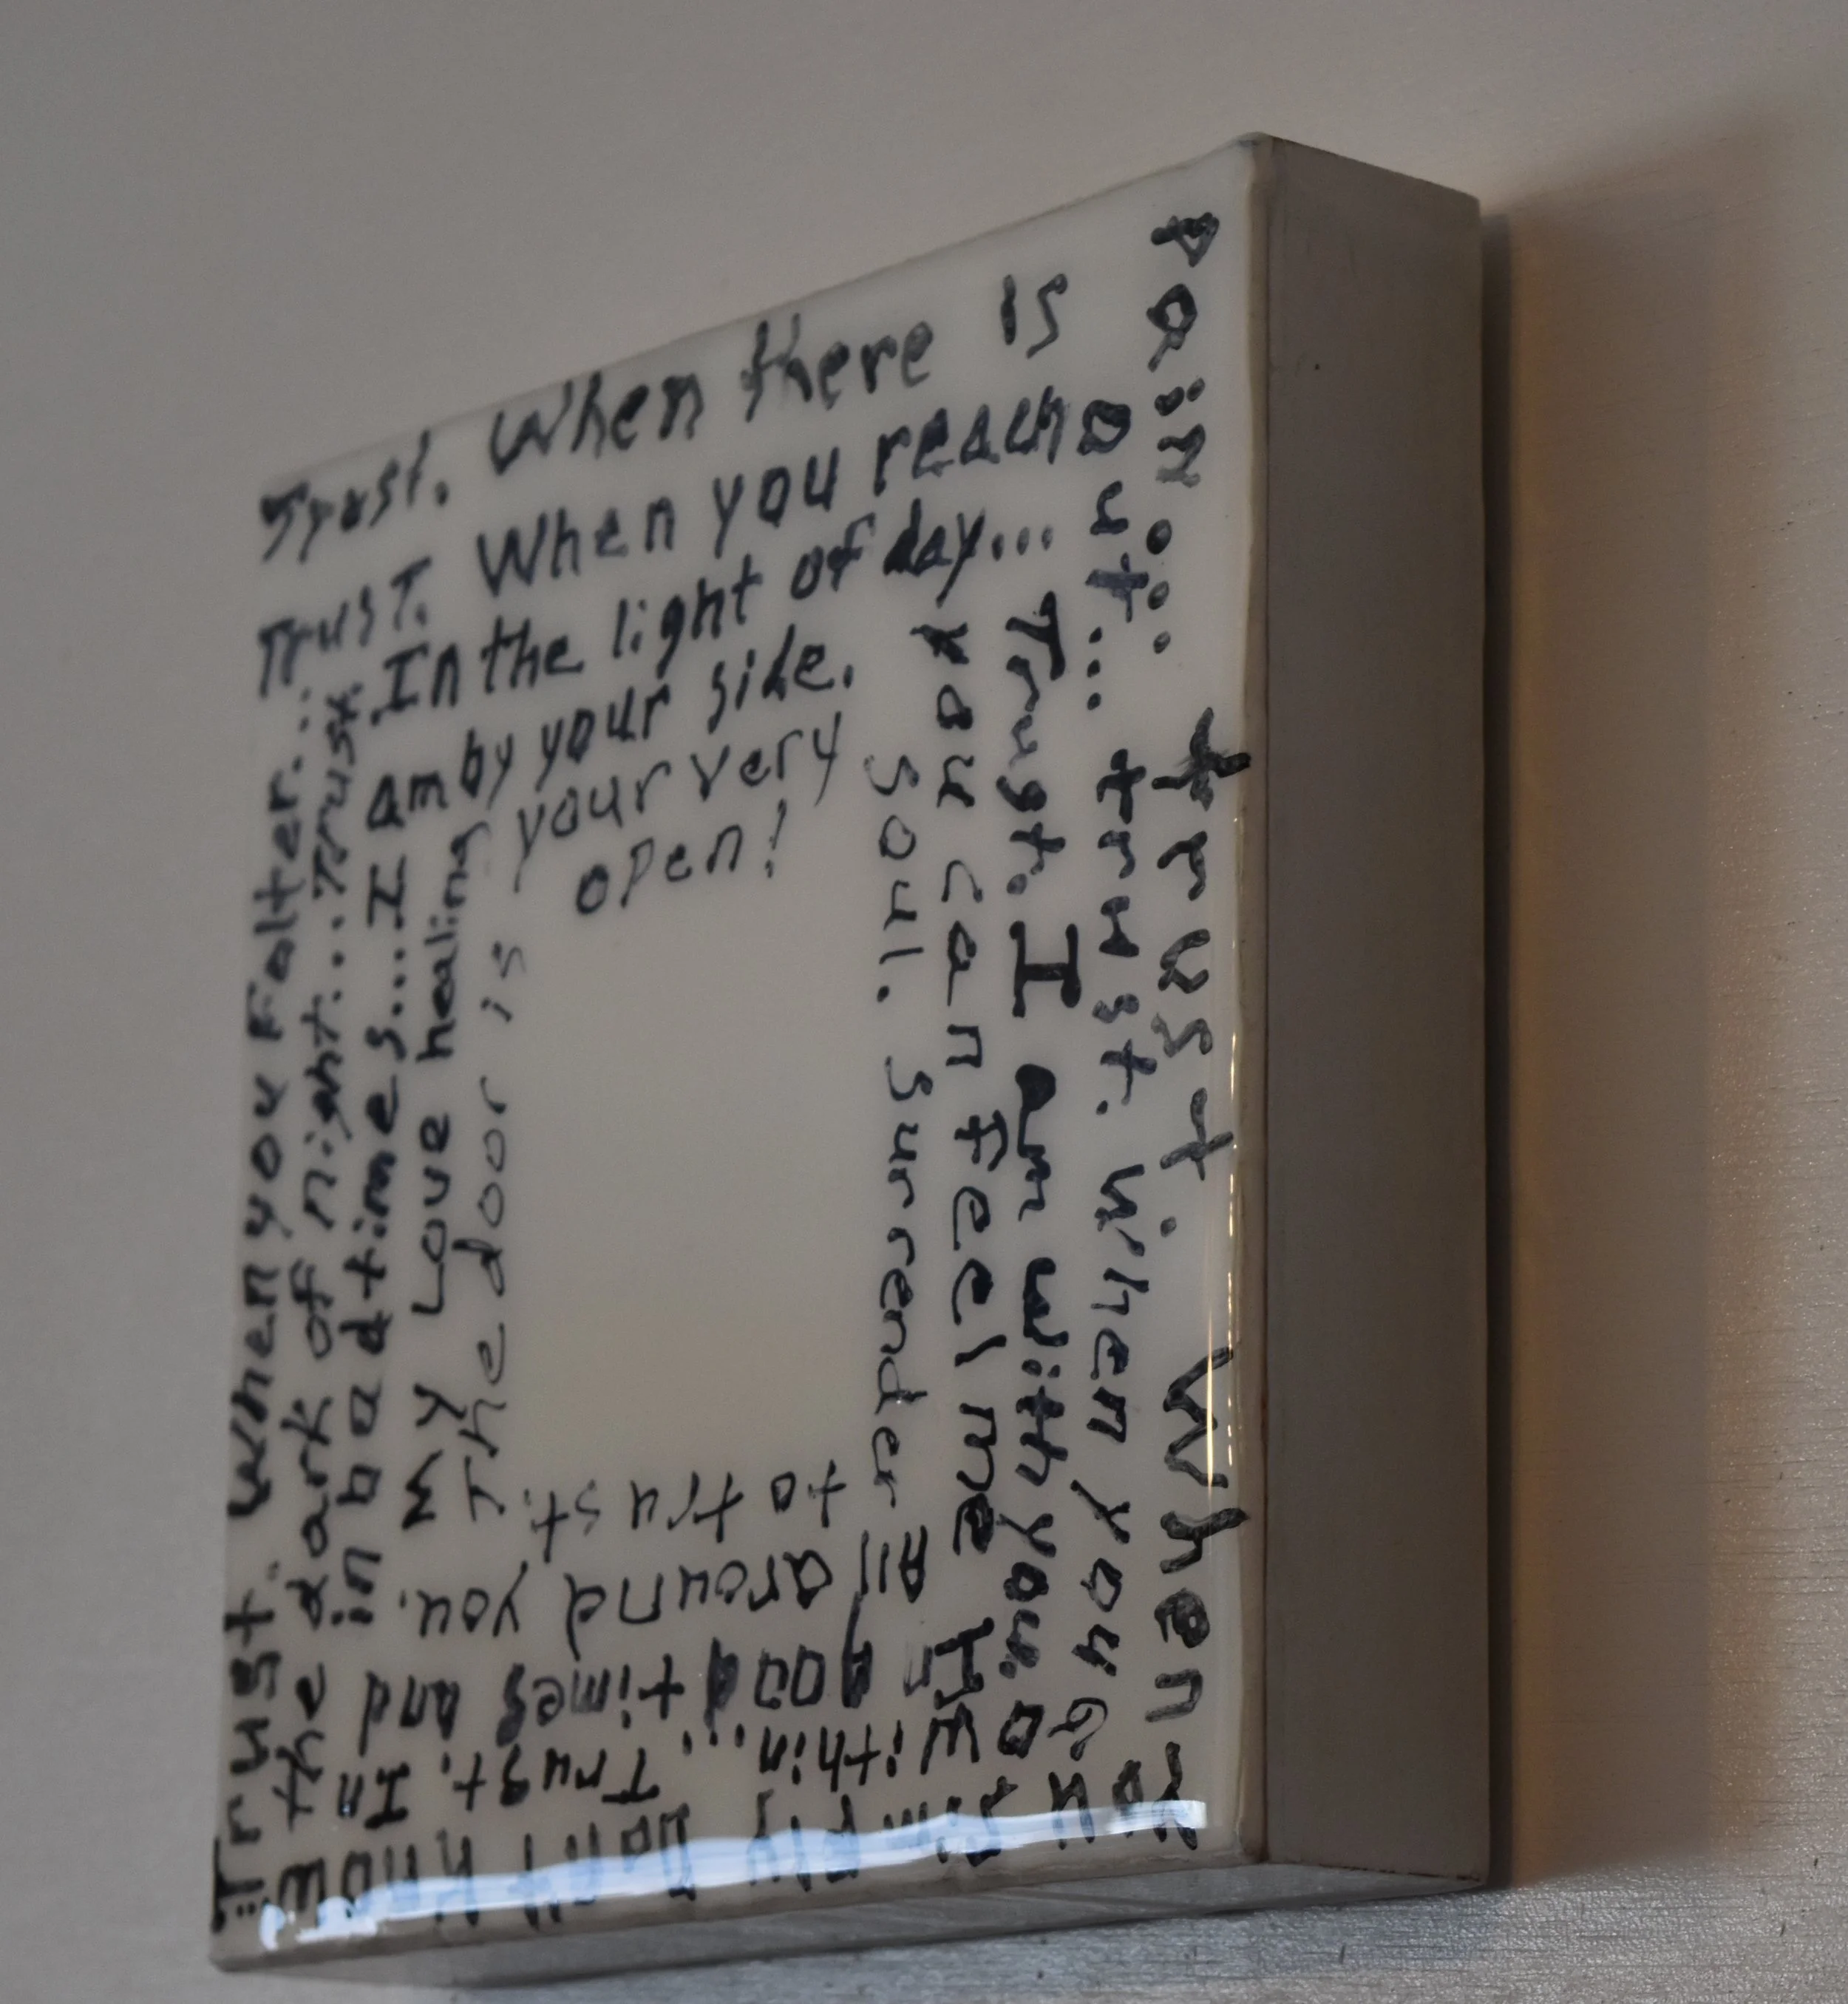 Trust. When there is
pain... trust. When
You simply Don't Know
... Trust. When you Falter...
Trust. When you reach
out... trust. When you Go
within... Trust. In
the dark of night... Trust.
In the light of day...
Trust. I am with you.
In good times and
in bad times... I am
by your side.
you can feel me
All around you.
My Love healing
your very
soul. Surrender
to trust.
The door is
open!